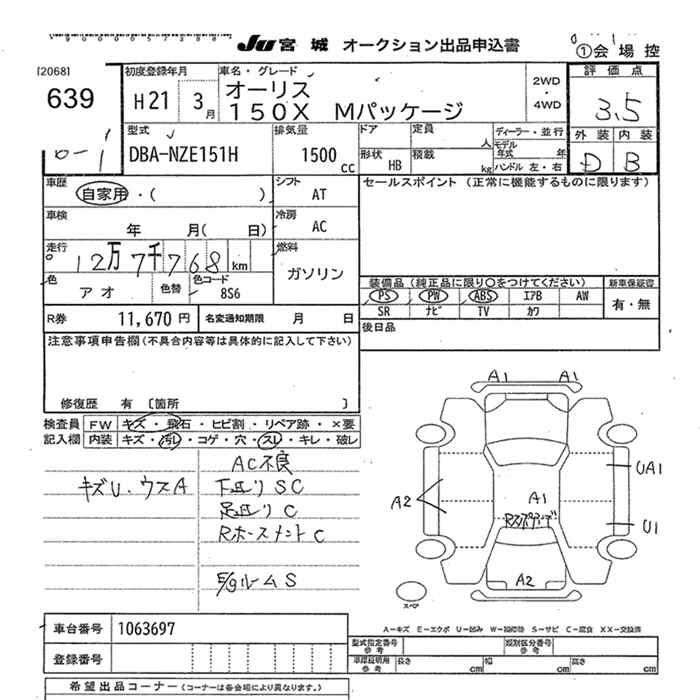 JU 宮城 オークション出品申込書
①会場控
[2068]
639
初度登録年月
H21 3月
車名・グレード
オーリス
150X Mパッケージ
2WD
・
4WD
評価点
3.5
外装 内装
D B
型式
DBA-NZE151H
排気量
1500 cc
ドア
定員 人
形状 HB
積載 kg
ディーラー・並行
モデル年式 年
ハンドル 左・右
車歴
自家用・( )
シフト
AT
セールスポイント (正常に機能するものに限ります)
車検
年 月( 日)
冷房
AC
走行
12万7千768 km
燃料
ガソリン
色
アオ
色替
色コード
8S6
装備品 (純正品に限り○をつけてください)
新車保証書
PS PW ABS エアB AW
有・無
SR ナビ TV カワ
R券 11,670円
名変通知期限 月 日
後日品
注意事項申告欄(不具合内容等は具体的に記入して下さい)
修復歴 有 [箇所 ]
検査員 FW キズ・飛石・ヒビ割・リペア跡・×要
記入欄 内装 キズ・汚レ・コゲ・穴・スレ・キレ・破レ
AC不良
キズU.ウスA
下廻り SC
足廻り C
Rホースメント C
E/gルーム S
A1 A1
UA1
A2
A1
U1
A2
スペア
A-キズ E-エクボ U-凹み W-補修跡 S-サビ C-腐食 XX-交換済
車台番号 1063697
登録番号
型式指定番号 参考
類別区分番号 参考
車庫証明用参考 長さ cm 幅 cm 高さ cm
希望出品コーナー (コーナーは各会場により異なります。)